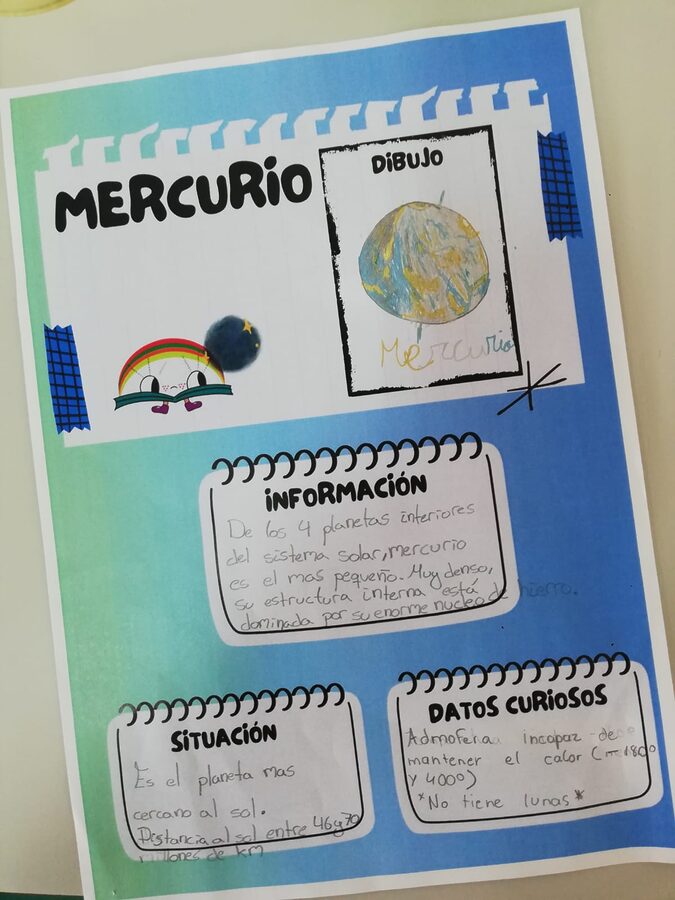 MERCURIO
DIBUJO
Mercurio
INFORMACIÓN
De los 4 planetas interiores
del sistema solar, mercurio
es el mas pequeño. Muy denso,
su estructura interna está
dominada por su enorme nucleo de hierro.
SITUACIÓN
Es el planeta mas
cercano al sol.
Distancia al sol entre 46 y 70
millones de km
DATOS CURIOSOS
Admofera incapaz de
mantener el calor (-180º
y 400º)
*No tiene lunas*